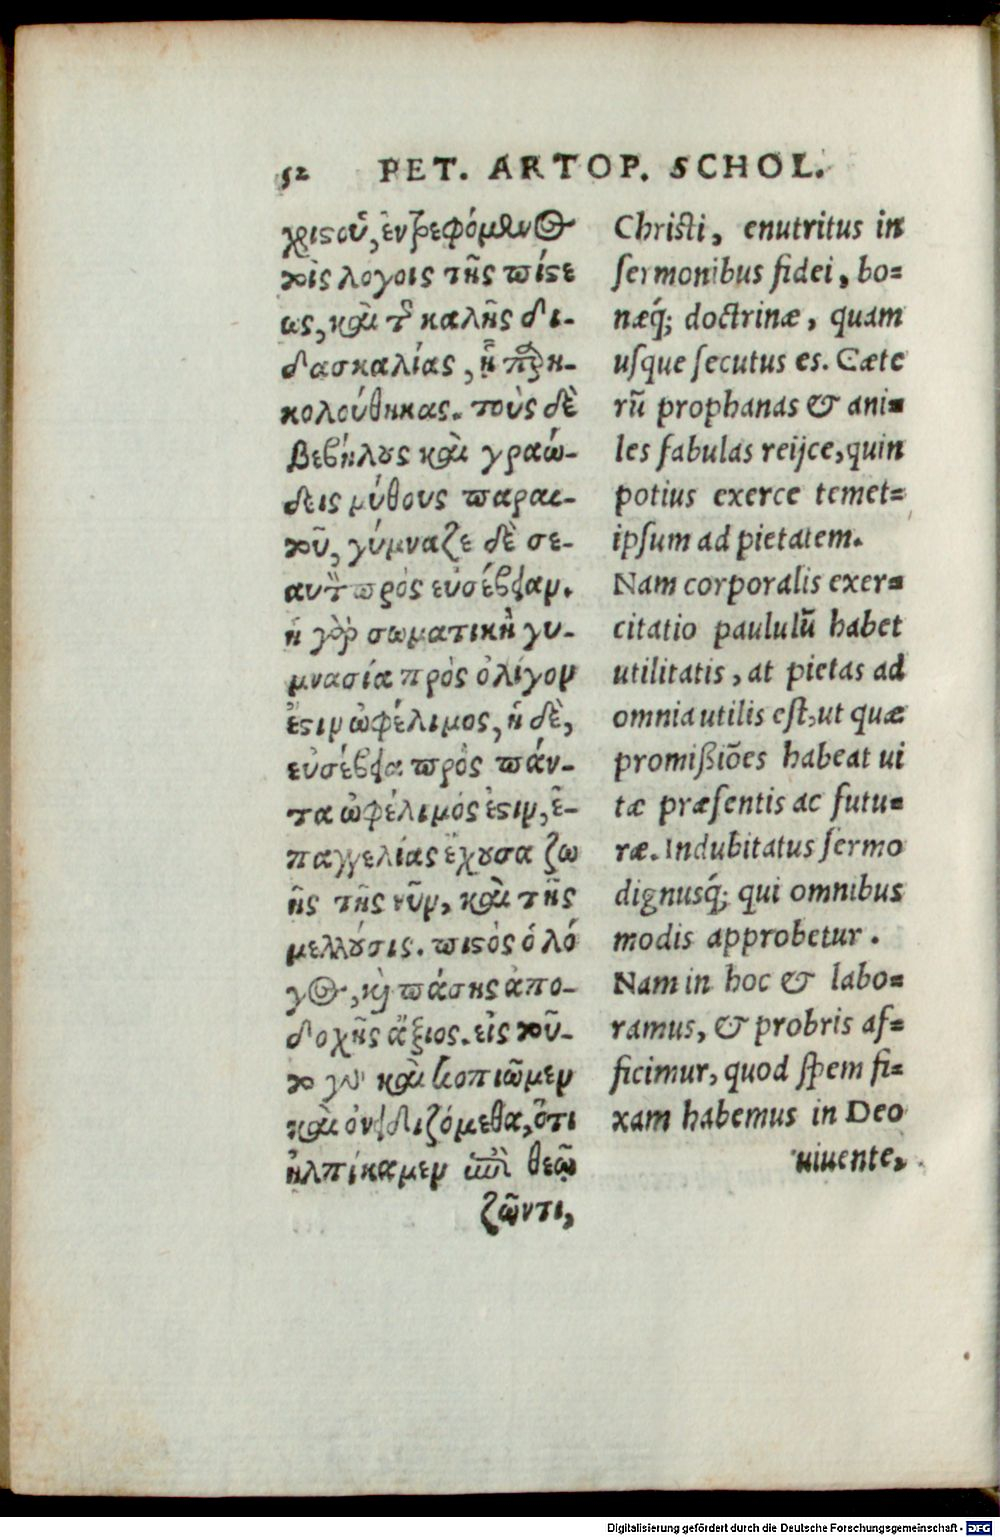 52 PET. ARTOP. SCHOL.
χριϛοῦ, ἐντρεφόμενος
τοῖς λογοις τῆς πίϛε
ως, καὶ τῆς καλῆς δι-
δασκαλίας, ᾗ παρη-
κολούθηκας. τοὺς δὲ
βεβήλους καὶ γραώ-
δεις μύθους παραι-
τοῦ, γύμναζε δὲ σε-
αυτὸν πρὸς εὐσέβειαν.
ἡ γὰρ σωματικὴ γυ-
μνασία πρὸς ὀλίγον
ἔϛιν ὠφέλιμος, ἡ δὲ,
εὐσέβεια πρὸς πάν-
τα ὠφέλιμός ἐϛιν, ἐ-
παγγελίας ἔχουσα ζω
ῆς τῆς νῦν, καὶ τῆς
μελλούσις. πιϛὸς ὁ λό
γος, καὶ πάσης ἀπο-
δοχῆς ἄξιος. εἰς τοῦ-
το γὰρ καὶ κοπιῶμεν
καὶ ὀνειδιζόμεθα, ὅτι
ἠλπίκαμεν ἐπὶ θεῷ
ζῶντι,
Christi, enutritus in
ſermonibus fidei, bo=
næq́; doctrinæ, quam
uſque ſecutus es. Cæte
rũ prophanas & ani=
les fabulas reijce, quin
potius exerce temet=
ipſum ad pietatem.
Nam corporalis exer=
citatio paululũ habet
utilitatis, at pietas ad
omnia utilis eſt, ut quæ
promißiões habeat ui
tæ præſentis ac futu=
ræ. Indubitatus ſermo
dignusq́; qui omnibus
modis approbetur.
Nam in hoc & labo=
ramus, & probris af=
ficimur, quod ſpem fi=
xam habemus in Deo
uiuente,
Digitalisierung gefördert durch die Deutsche Forschungsgemeinschaft - DFG